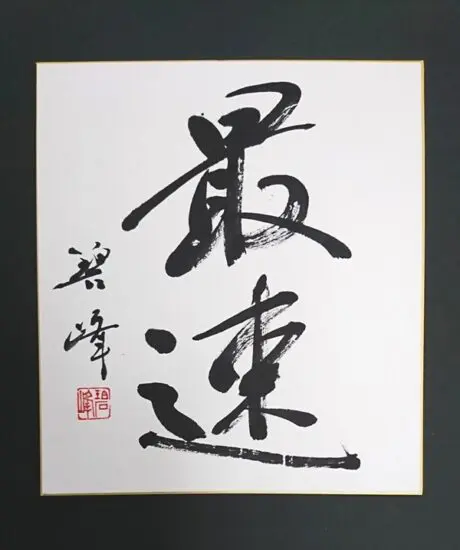 最速
碧峰
碧峰